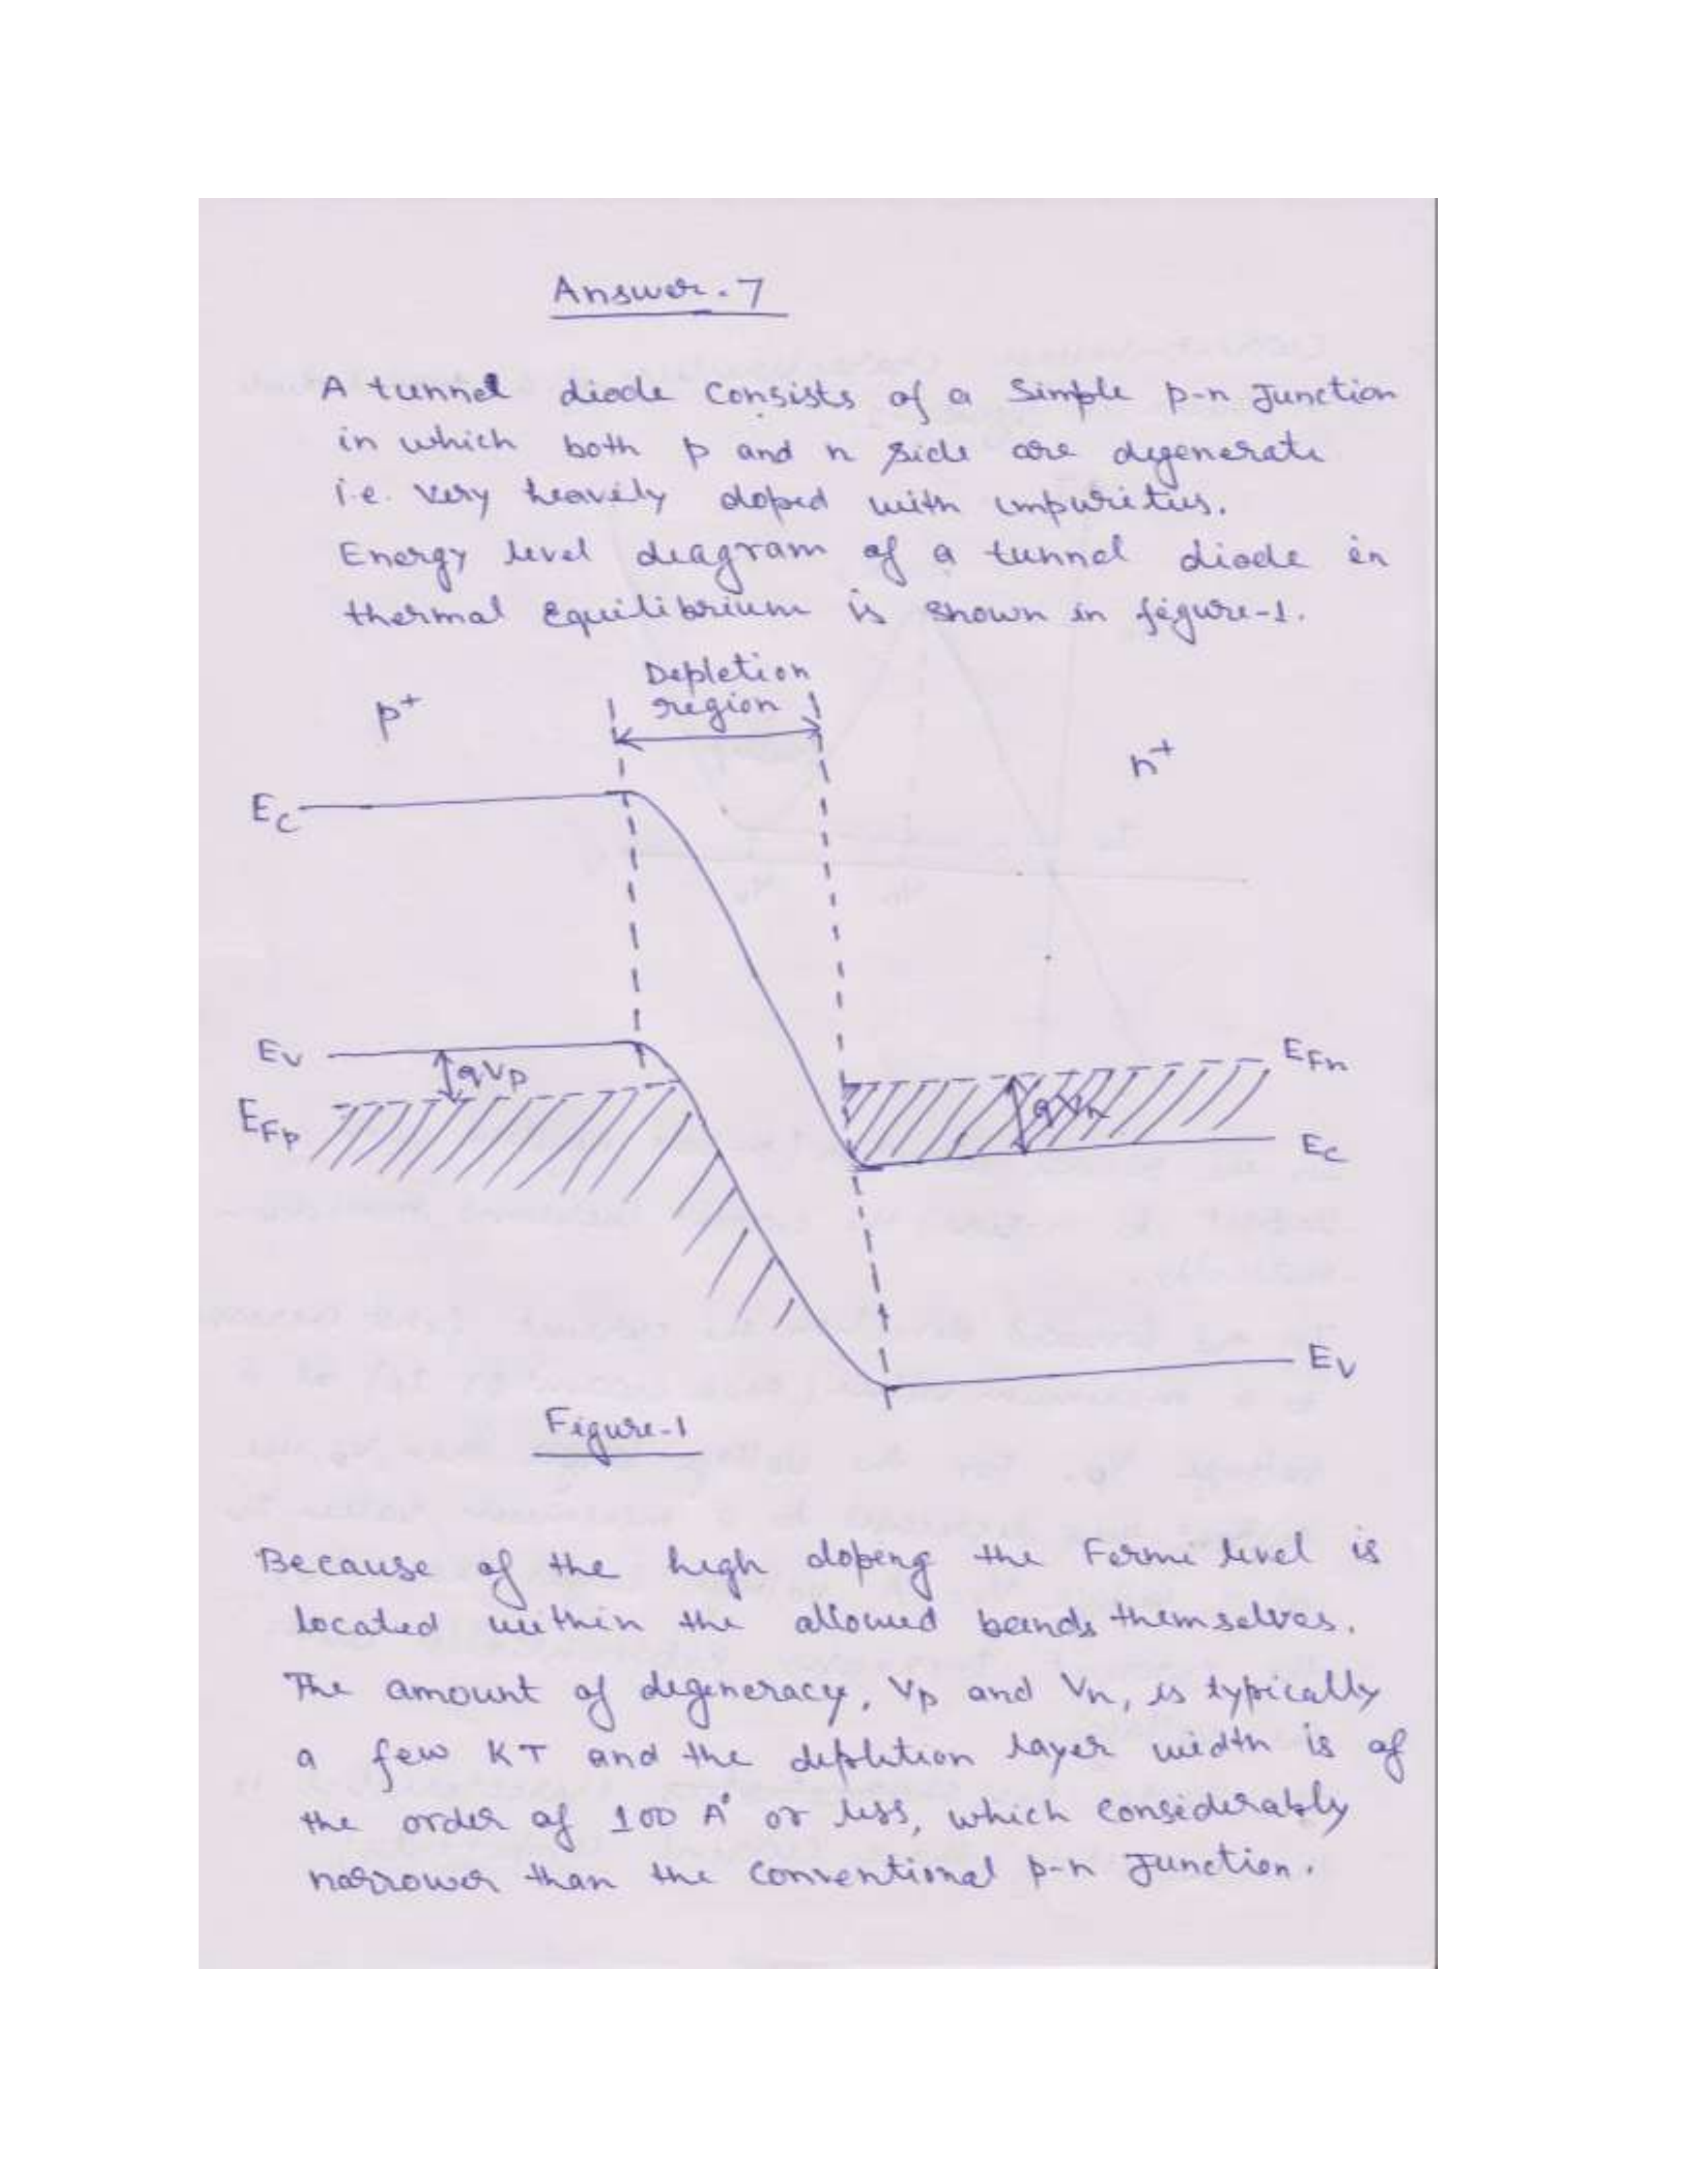 Answer.7
A tunnel diode Consists of a Simple p-n Junction
in which both p and n side are degenerate
i.e. very heavily doped with impurities.
Energy level diagram of a tunnel diode in
thermal Equilibrium is shown in figure-1.
Depletion
region
p+
n+
Ec
Ev
qVp
EFp
EFn
qVn
Ec
Ev
Figure-1
Because of the high doping the Fermi level is
located within the allowed bands themselves.
The amount of degeneracy, Vp and Vn, is typically
a few KT and the depletion layer width is of
the order of 100 A° or less, which considerably
narrower than the conventional p-n Junction.